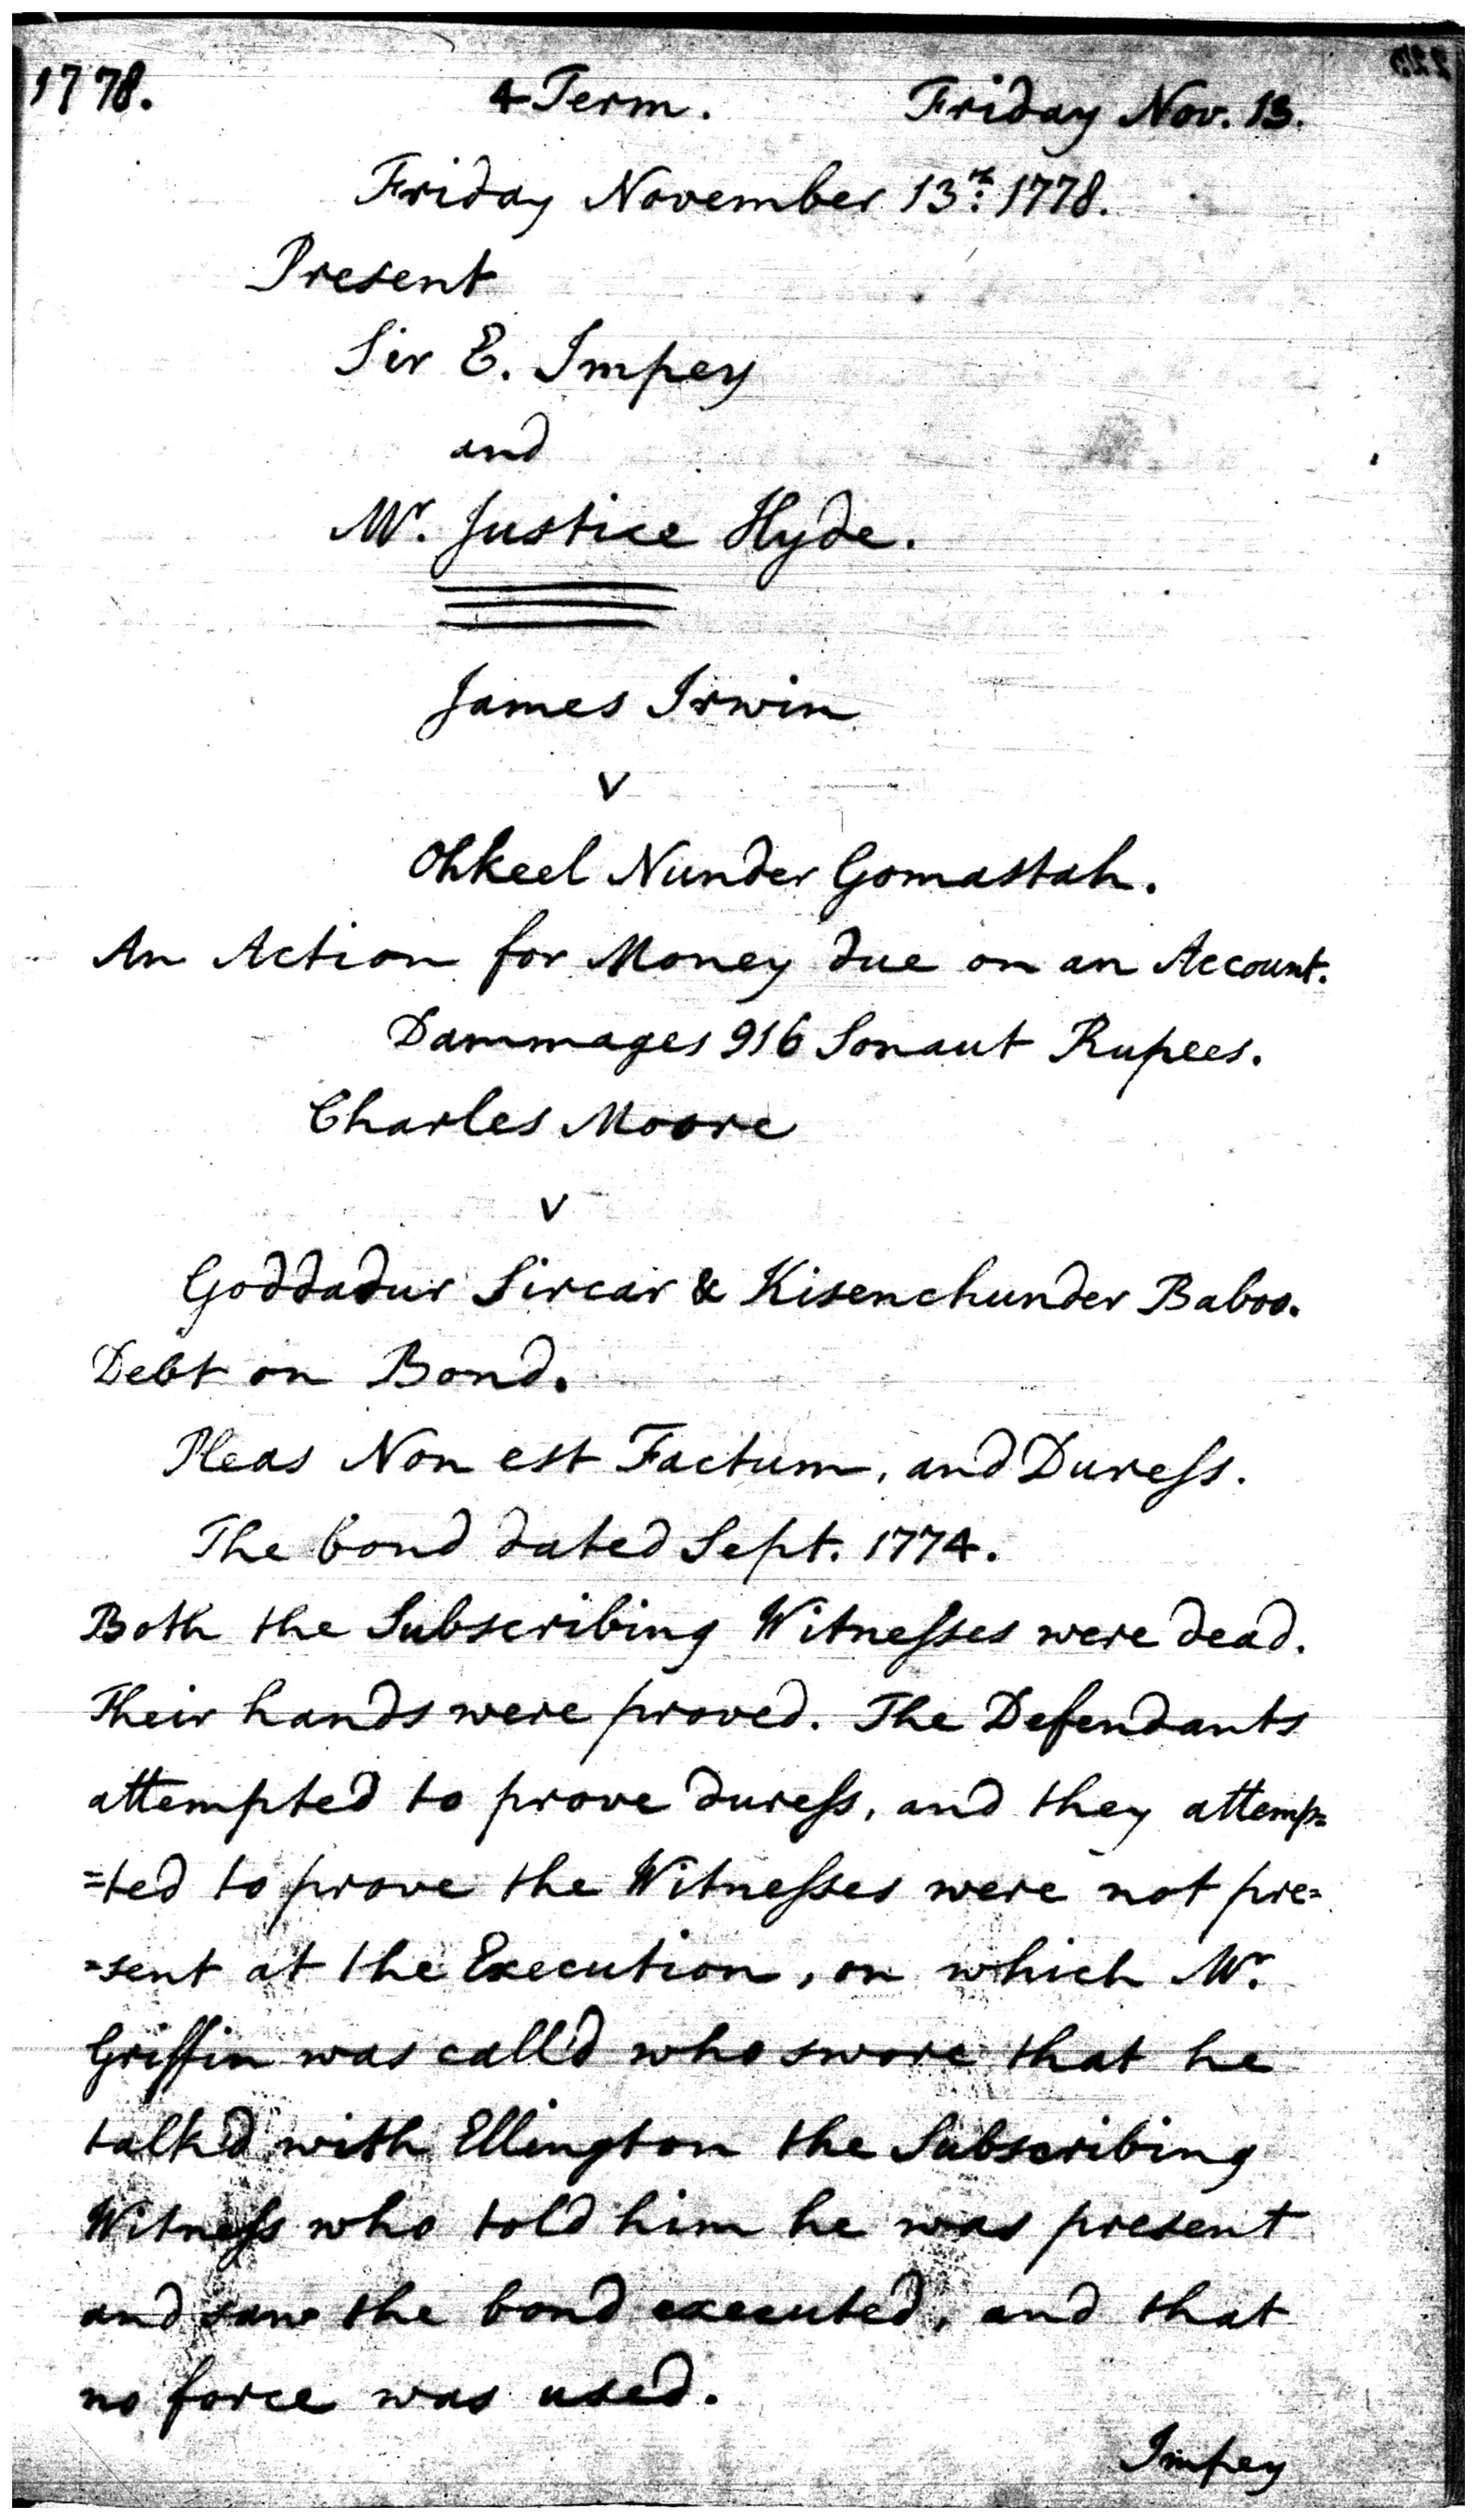 1778. 4 Term. Friday Nov. 13.
Friday November 13th. 1778.
Present
Sir E. Impey
and
Mr. Justice Hyde.
James Irwin
v
Ohkeel Nunder Gomastah.
An Action for Money due on an Account.
Dammages 916 Sonaut Rupees.
Charles Moore
v
Goddadur Sircar & Kisenchunder Baboo.
Debt on Bond.
Pleas Non est Factum, and Dureſs.
The bond dated Sept. 1774.
Both the Subscribing Witneſses were dead.
Their hands were proved. The Defendants
attempted to prove dureſs, and they attemp=
=ted to prove the Witneſses were not pre=
=sent at the Execution, on which Mr.
Griffin was call'd who swore that he
talk'd with Ellington the Subscribing
Witneſs who told him he was present
and saw the bond executed, and that
no force was used.
Impey